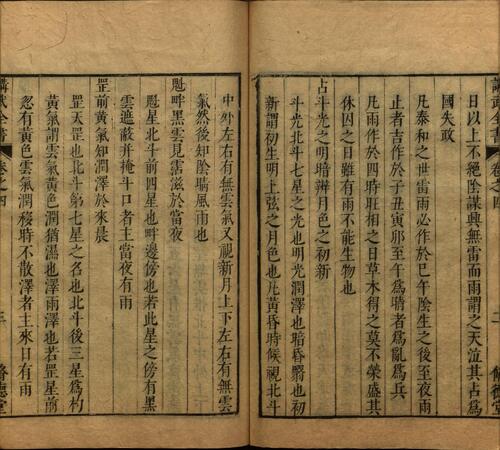 日以上不絕陰謀興無雷而雨謂之天泣其占爲
國失政
凡泰和之世雷雨必作於巳午陰生之後至夜雨
止者吉作於子丑寅卯至午爲晴者爲亂爲兵
凡雨作於四時旺相之日草木得之莫不榮盛其
休囚之日雖有雨不能生物也
占斗光之明暗辨月色之初新
斗光北斗七星之光也明光潤澤也暗昏翳也初
新謂初生明上弦之月色也凡黃昏時候視北斗
中外左右有無雲氣又視新月上下左右有無雲
氣然後知陰晴風雨也
魁畔黑雲見霑滋於當夜
魁星北斗前四星也畔邊傍也若此星之傍有黑
雲遮蔽并掩斗口者主當夜有雨
罡前黃氣知潤澤於來晨
罡天罡也北斗第七星之名也北斗後三星爲杓
黃氣謂雲氣黃色潤猶濕也澤雨澤也若罡星前
忽有黃色雲氣潤移時不散澤者主來日有雨
講武全書
卷之四
三
脩德堂
講武全書
卷之四
二
脩德堂